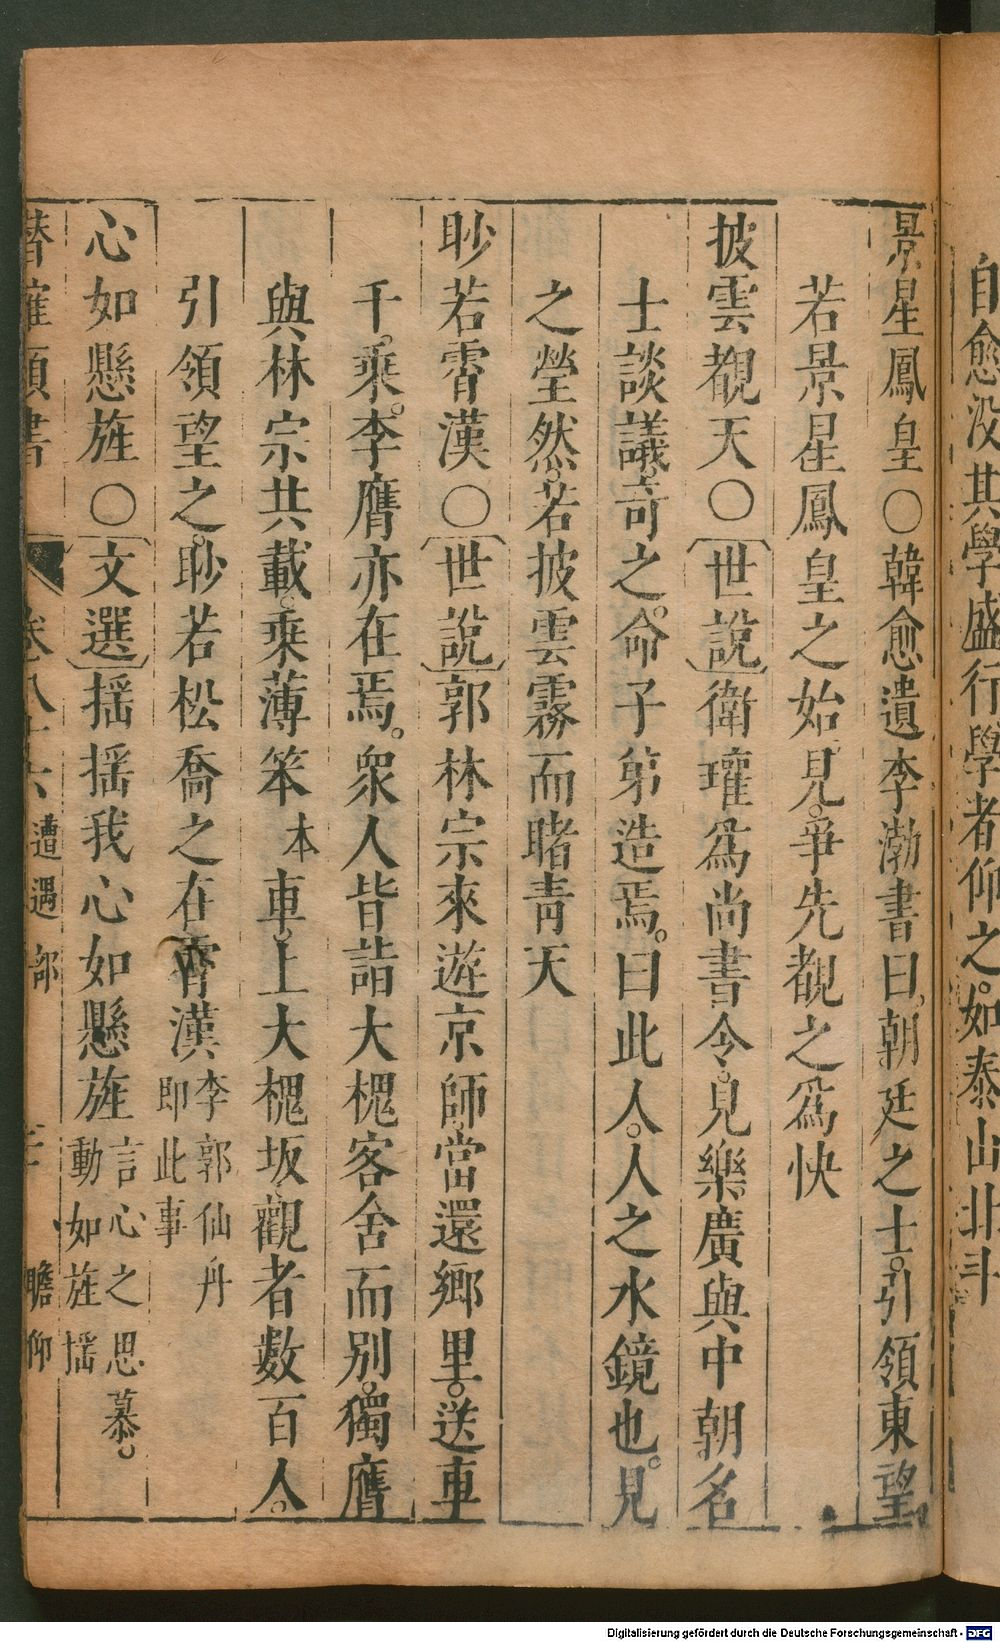 自愈没其學盛行學者仰之如泰山北斗
景星鳳皇○韓愈遺李渤書曰朝廷之士引領東望
若景星鳳皇之始見爭先覩之爲快
披雲覩天○世說衛瓘爲尚書令見樂廣與中朝名
士談議奇之命子弟造焉曰此人人之水鏡也見
之瑩然若披雲霧而睹青天
眇若霄漢○世說郭林宗來遊京師當還鄉里送車
千乘李膺亦在焉衆人皆詣大槐客舍而別獨膺
與林宗共載乘薄笨本車上大槐坂觀者數百人
引領望之眇若松喬之在霄漢李郭仙舟即此事
心如懸旌○文選揺揺我心如懸旌言心之思慕動如旌揺
潛確類書 卷八十六 遭遇部 瞻仰
Digitalisierung gefördert durch die Deutsche Forschungsgemeinschaft - DFG